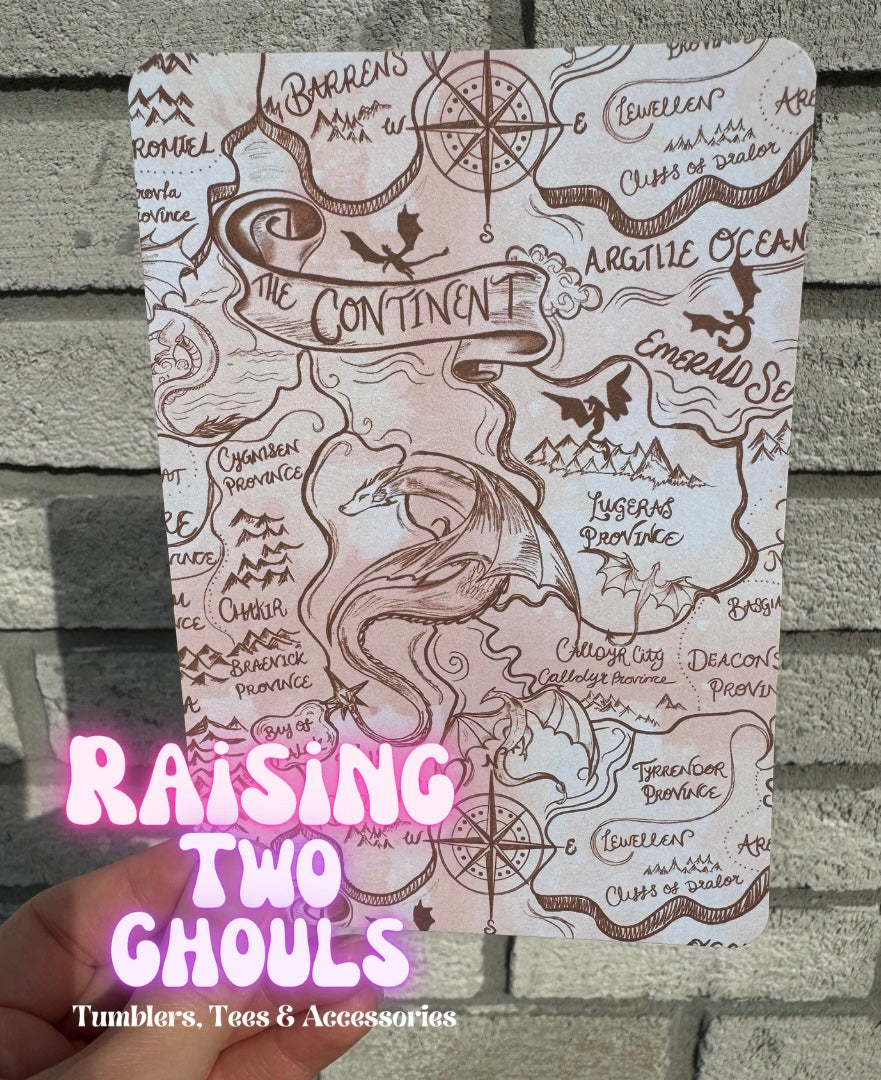 PROVINCE
BARRENS
LEWELLEN
ARE
ROMIEL
W
E
Cliffs of Dralor
rovla
rovince
S
ARGTILE OCEAN
THE CONTINENT
EMERALD SEA
CYGNISEN
PROVINCE
LUGERAS
PROVINCE
RE
INCE
CHAKIR
BASGIA
BRAENICK
PROVINCE
CALLDYR CITY
Calldyr Province
DEACONS
PROVIN
Bay of
N
TYRRENDOR
PROVINCE
W
E
LEWELLEN
ARE
Cliffs of Dralor
S
RAiSiNG
TWO
GHOULS
Tumblers, Tees & Accessories